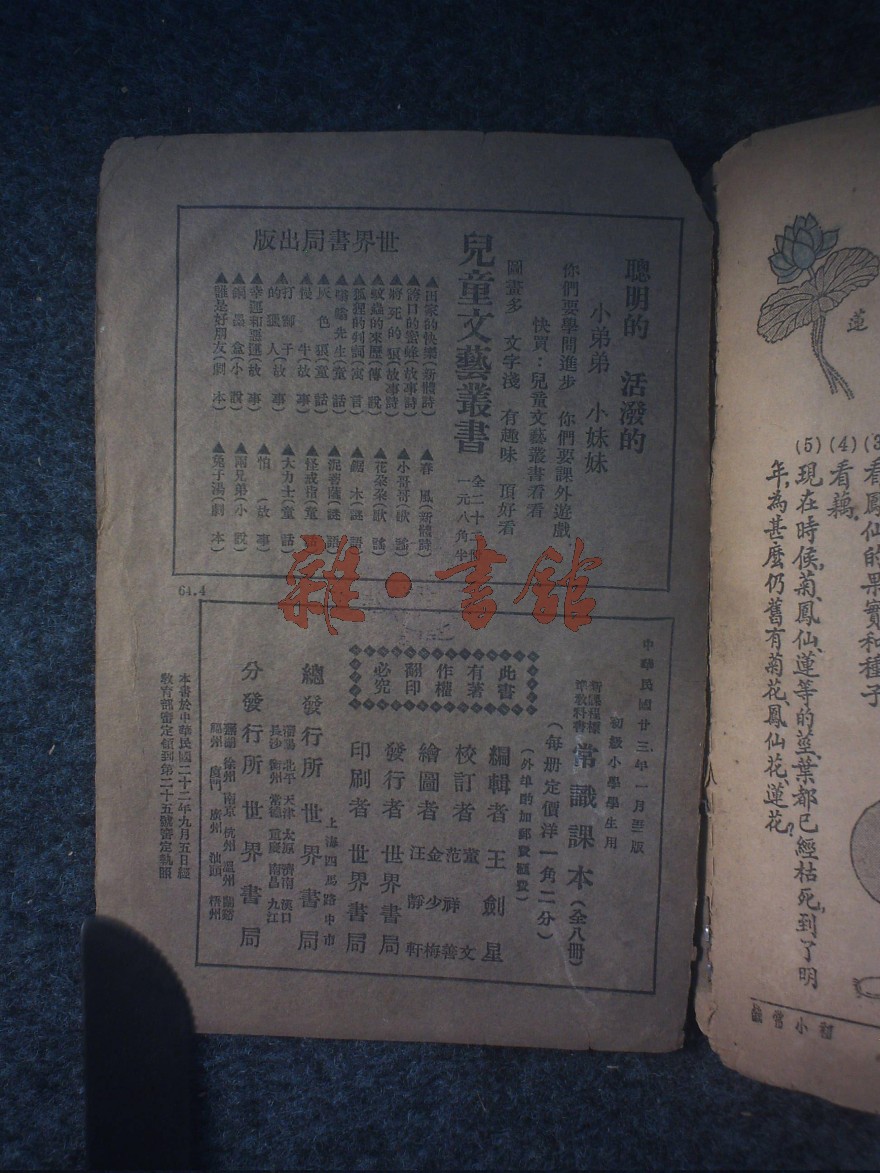 聰明的 活潑的
小弟弟 小妹妹
你們要學問進步 你們要課外遊戲
快買：兒童文藝叢書看看
圖畫多 文字淺 有趣味 頂好看
兒童文藝叢書
全二十二冊
一元八角半
世界書局出版
▲田家的快樂(新體詩)
▲將死的(故事詩)
▲蚊蟲的來歷(傳說)
▲狐狸的判詞(寓言)
▲先生(童話)
▲灰色狼(童話)
▲慢牛(故事)
▲打獅子的獵人(故事)
▲幸運和(故事)
▲銅墨盒(小說)
▲誰是好朋友(劇本)
▲春風(新體詩)
▲小哥哥(歌謠)
▲花朵朵(歌謠)
▲鋸木(謎語)
▲泥菩薩(謎語)
▲怪戒指(童話)
▲大力士(童話)
▲怕(故事)
▲兩兄弟(小說)
▲兔子湯(劇本)
雜·書館
64.4
中華民國廿三年一月至一版
初級小學學生用
新課程標準教科書
常識課本(全八冊)
(每册定價洋一角二分)
(外埠酌加郵費匯費)
編輯者 王劍星
校訂者 董文 范祥善
繪圖者 金少梅 汪靜軒
發行者 世界書局
印刷者 世界書局
此書有著作權翻印必究
上海四馬路中市
總發行所 世界書局
瀋陽 北平 天津 太原 濟南 漢口
長沙 衡州 常德 重慶 南昌 九江
分發行所 世界書局
蕪湖 徐州 南京 杭州 溫州 蘭谿
福州 廈門 廣州 汕頭 梧州
本書於中華民國二十二年九月五日經
教育部審定領到第二十五號審定執照
蓮
(3)看鳳仙的果實和種子
(4)看藕
(5)現在時候,菊、鳳仙、蓮等的莖、葉都已經枯死,到了明
年,為甚麼仍舊有菊花、鳳仙花、蓮花?
初小常識